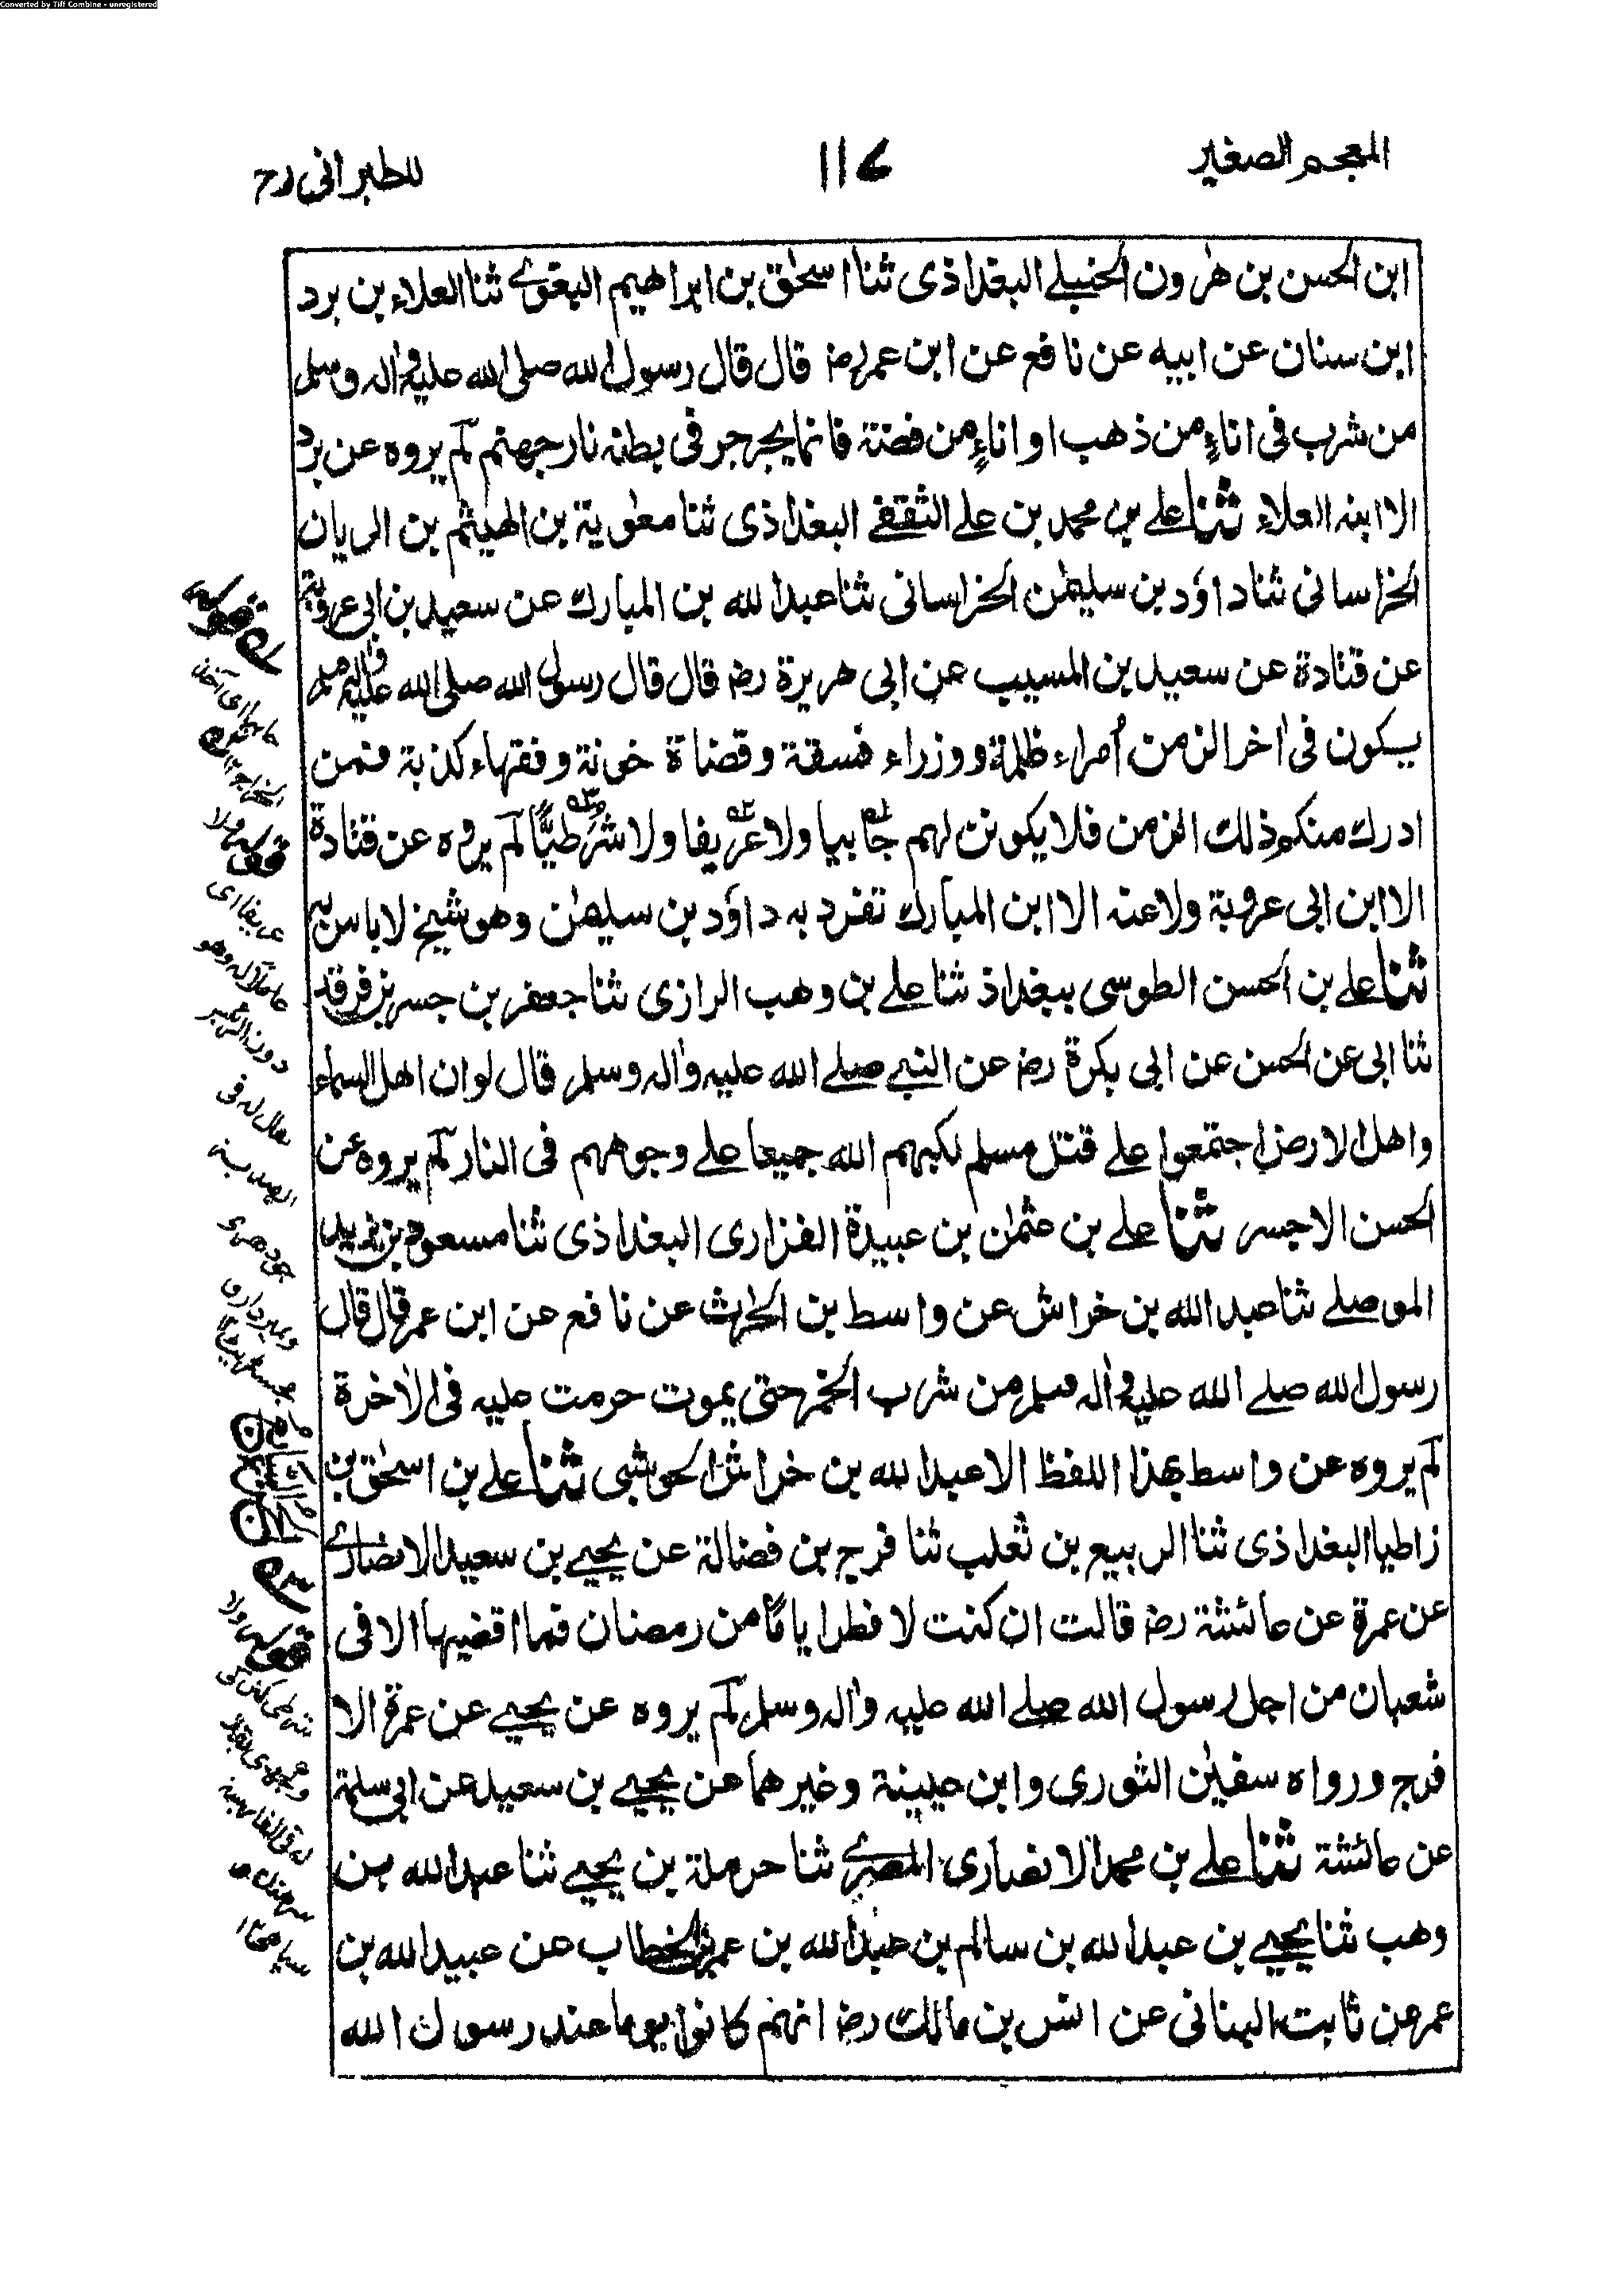 Converted by Tiff Combine - unregistered
المعجم الصغير
١١٧
للطبرانی رح
ابن الحسن بن هٰرون الحنبلے البغداذی ثنا اسحٰق بن ابراهيم البغوے ثنا العلاء بن برد
ابن سنان عن ابيه عن نافع عن ابن عمر رضـ قال قال رسول الله صلى الله عليه واٰله وسلم
من شرب فی اناءٍ من ذهب او اناءٍ من فضة فانما يجرجر فی بطنه نار جهنم لم يروه عن برد
الا ابنه العلاء ثنا علے بن محمد بن علے الثقفے البغداذی ثنا معٰوية بن الهيثم بن الريان
الخراسانی ثنا داوٗد بن سليمٰن الخراسانی ثنا عبد الله بن المبارك عن سعيد بن ابی عروبة
عن قتادة عن سعيد بن المسيب عن ابی هريرة رضـ قال قال رسول الله صلى الله عليه واٰله وسلم
يسكون فی اٰخر الزمن أمراء ظلمة ووزراء فسقة وقضاة خونة وفقهاء كذبة فمن
ادرك منكم ذلك الزمن فلا يكونن لهم جابيا ولا عريفا ولا شرطيًّا لم يروه عن قتادة
الا ابن ابی عروبة ولا عنه الا ابن المبارك تفرد به داوٗد بن سليمٰن وهو شيخ لا باس به
ثنا علے بن الحسن الطوسی ببغداذ ثنا علے بن وهب الرازی ثنا جعفر بن جسر بن فرقد
ثنا ابی عن الحسن عن ابی بكرة رضـ عن النبے صلے الله عليه واٰله وسلم قال لو ان اهل السماء
واهل الارض اجتمعوا علے قتل مسلم لكبهم الله جميعا علے وجوههم فی النار لم يروه عن
الحسن الا جسر ثنا علے بن عثمٰن بن عبيدة الفزاری البغداذی ثنا مسعود بن
الموصلے ثنا عبد الله بن خراش عن واسط بن الحٰرث عن نافع عن ابن عمر قال قال
رسول الله صلے الله عليه واٰله وسلم من شرب الخمر حتى يموت حرمت عليه فی الاٰخرة
لم يروه عن واسط بهذا اللفظ الا عبد الله بن خراش الحوشبی ثنا علے بن اسحٰق بن
زاطيا البغداذی ثنا الربيع بن ثعلب ثنا فرج بن فضالة عن يحيے بن سعيد الانصارے
عن عمرة عن عائشة رضـ قالت ان كنت لا فطر اياما من رمضان فما اقضيها الا فی
شعبان من اجل رسول الله صلے الله عليه واٰله وسلم لم يروه عن يحيے عن عمرة الا
فرج ورواه سفيٰن الثوری وابن عيينة وغيرهما عن يحيے بن سعيد عن ابی سلمة
عن عائشة ثنا علے بن محمد الانصاری المصرے ثنا حرملة بن يحيے ثنا عبد الله بن
وهب ثنا يحيے بن عبد الله بن سالم بن عبد الله بن عمر بن الخطاب عن عبيد الله بن
عمر عن ثابت البنانی عن انس بن مالك رضـ انهم كانوا يوما عند رسول الله
قوله
قوله ولا
عريفا ای
عاملا له وهو
قوله ولا